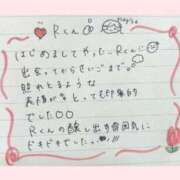 ♥ Rくん
はじめまして やった〜Rくんに
出会ってからさいごまで。
照れるような
表情がとっても印象的
でした○○
Rくんの醸し出す雰囲気に
ドキドキでした